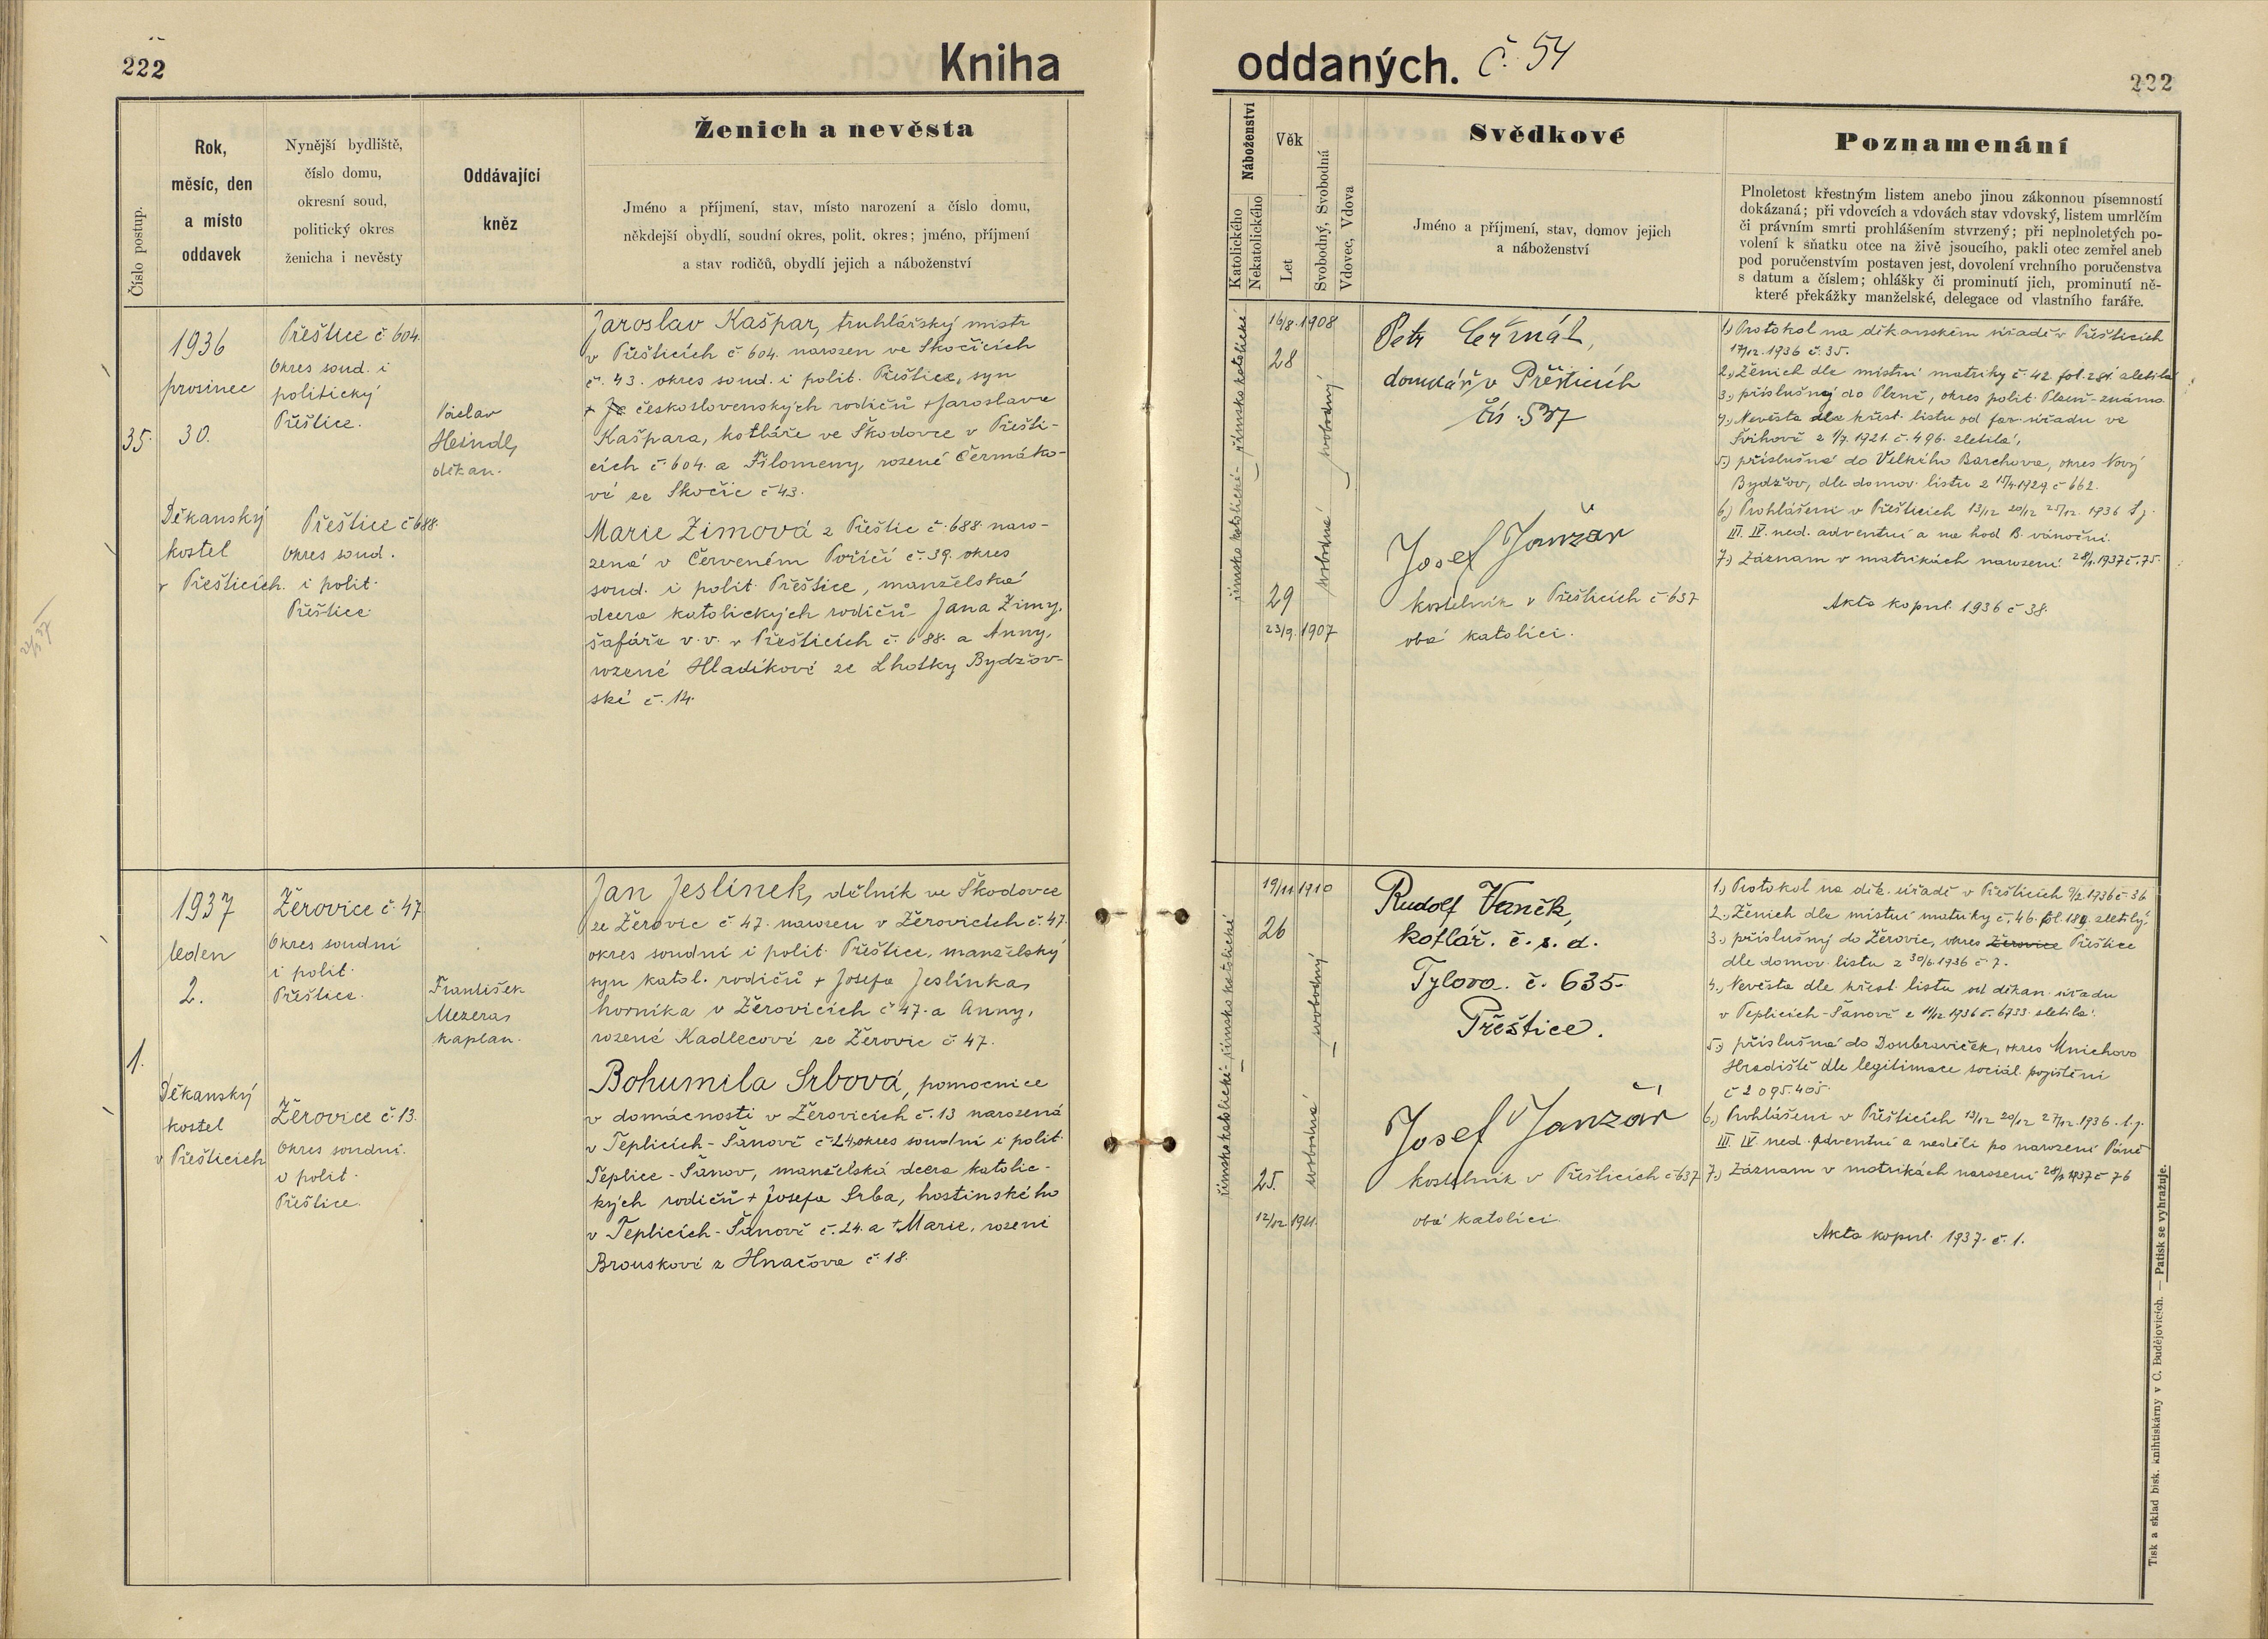 222
Kniha
oddaných. č. 54
222
Číslo postup.
Rok,
měsíc, den
a místo
oddavek
Nynější bydliště,
číslo domu,
okresní soud,
politický okres
ženicha i nevěsty
Oddávající
kněz
Ženich a nevěsta
Jméno a příjmení, stav, místo narození a číslo domu,
někdejší obydlí, soudní okres, polit. okres; jméno, příjmení
a stav rodičů, obydlí jejich a náboženství
Náboženství
Katolického
Nekatolického
Věk
Let
Svobodný, Svobodná
Vdovec, Vdova
Svědkové
Jméno a příjmení, stav, domov jejich
a náboženství
Poznamenání
Plnoletost křestným listem anebo jinou zákonnou písemností
dokázaná; při vdovcích a vdovách stav vdovský, listem umrlčím
či právním smrti prohlášením stvrzený; při neplnoletých po-
volení k sňatku otce na živě jsoucího, pakli otec zemřel aneb
pod poručenstvím postaven jest, dovolení vrchního poručenstva
s datum a číslem; ohlášky či prominutí jich, prominutí ně-
které překážky manželské, delegace od vlastního faráře.
35.
1936
prosinec
30.
Děkanský
kostel
v Přešticích.
Přeštice č 604.
Okres soud. i
politický
Přeštice.
Přeštice č 688.
Okres soud.
i polit.
Přeštice.
Václav
Heindl,
děkan.
Jaroslav Kašpar, truhlářský mistr
v Přešticích č. 604. narozen ve Skočicích
č. 43. okres soud. i polit. Přeštice, syn
československých rodičů + Jaroslava
Kašpara, kotláře ve Škodovce v Přešti-
cích č. 604. a Filomeny, rozené Čermáko-
vé ze Skočic č 43.
Marie Zimová z Přeštic č. 688. naro-
zená v Červeném Poříčí č. 39. okres
soud. i polit. Přeštice, manželská
dcera katolických rodičů Jana Zimy,
šafáře v. v. v Přešticích č. 688. a Anny,
rozené Hladíkové ze Lhotky Bydžov-
ské č. 14.
římsko katolické
římsko katolické
16/8. 1908
28
29
23/9. 1907
svobodný
svobodná
Petr Čermák,
domkář v Přešticích
čís. 537
Josef Janžár
kostelník v Přešticích č 637
oba katolíci.
1.) Protokol na děkanském úřadě v Přešticích
17/12. 1936 č. 35.
2.) Ženich dle místní matriky č. 42. fol. 281. zletilý
3.) příslušný do Plzně, okres polit. Plzeň - známo.
4.) Nevěsta dle křest. listu od far. úřadu ve
Švihově z 1/7. 1921. č. 496. zletilá,
5.) příslušná do Velkého Barchova, okres Nový
Bydžov, dle domov. listu z 15/4. 1929. č 662.
6.) Prohlášeni v Přešticích 13/12 20/12 25/12. 1936 t. j.
III. IV. ned. adventní a na hod B. vánoční.
7.) Záznam v matrikách narození 28/1. 1937 č. 75.
Akta kopul. 1936 č 38.
1.
1937
leden
2.
Děkanský
kostel
v Přešticích
Žerovice č. 47
Okres soudní
i polit.
Přeštice.
Žerovice č. 13.
Okres soudní.
i polit.
Přeštice.
František
Mezera,
kaplan.
Jan Jeslínek, dělník ve Škodovce
ze Žerovic č. 47. narozen v Žerovicích č. 47.
okres soudní i polit. Přeštice, manželský
syn katol. rodičů + Josefa Jeslínka,
horníka v Žerovicích č 47. a Anny,
rozené Kadlecové ze Žerovic č. 47.
Bohumila Srbová, pomocnice
v domácnosti v Žerovicích č. 13 narozená
v Teplicích - Šanově č 24, okres soudní i polit.
Teplice - Šanov, manželská dcera katolic-
kých rodičů + Josefa Srba, hostinského
v Teplicích - Šanově č. 24. a + Marie, rozené
Brouskové z Hnačova č. 18.
římsko katolické
římsko katolické
19/11 1910
26
25.
12/12 1911.
svobodný
svobodná
Rudolf Vaněk,
kotlář. č. s. d.
Tylova. č. 635.
Přeštice.
Josef Janžár
kostelník v Přešticích č 637
oba katolíci.
1.) Protokol na děk. úřadě v Přešticích 9/12 1936 č. 36
2.) Ženich dle místní matriky č. 46. fol. 189. zletilý,
3.) příslušný do Žerovic, okres Žerovice Přeštice
dle domov. listu z 30/6. 1936 č. 7.
4.) Nevěsta dle křest. listu od děkan. úřadu
v Teplicích - Šanově z 11/12 1936 č. 6733. zletilá.
5.) příslušná do Doubraviček, okres Mnichovo
Hradiště dle legitimace sociál. pojištění
č 2 095.405.
6.) Prohlášeni v Přešticích 13/12 20/12 27/12. 1936. t. j.
III. IV. ned. Adventní a neděli po narození Páně
7.) Záznam v matrikách narození 28/1. 1937 č 76
Akta kopul. 1937. č. 1.
Tisk a sklad bisk. knihtiskárny v C. Budějovicích. — Patisk se vyhražuje.